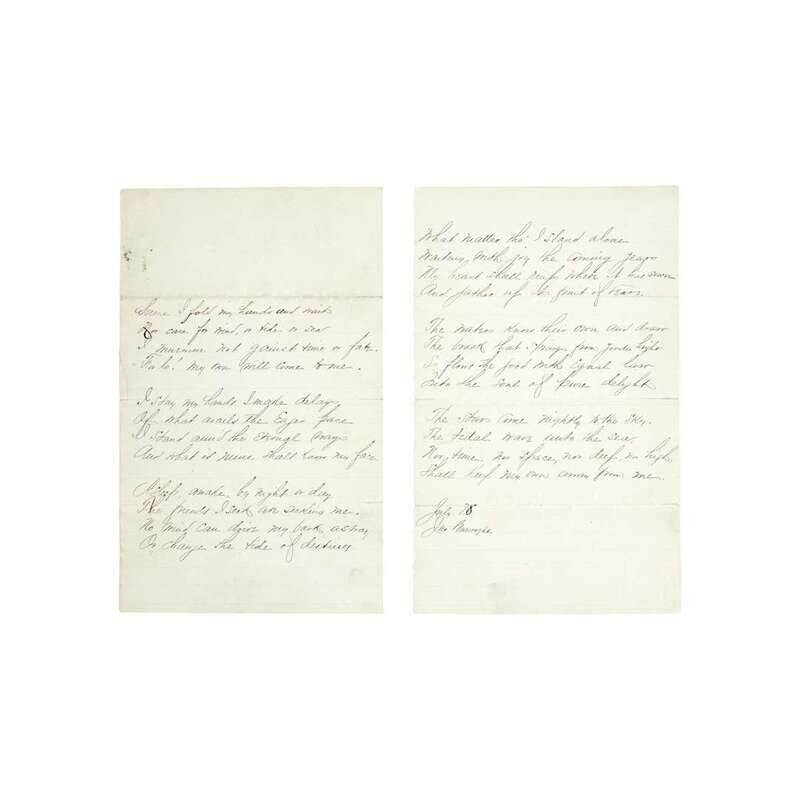 Serene I fold my hands and wait
Nor care for wind, or tide or sea
I murmur not gainst time or fate.
For lo! my own will come to me.
I stay my hands I make delays
Of what avails the Eager pace
I Stand amid the Eternal ways
And what is mine shall know my face
Asleep, awake, by night or day
The friends I seek are seeking me.
No wind can drive my bark astray
Or change the tide of destiny
What matter tho' I Stand alone
Waiting with joy the coming years
My heart shall reap where it has sown
And gather up its fruit of tears.
The waters know their own and draw
The brook that Springs from yonder hight
So flows the good with Equal law
Unto the soul of pure delight
The Stars Come nightly to the Sky.
The tidal wave unto the sea,
Nor, time, nor space, nor deep nor high
Shall keep my own away from me.
78
Jno Burroughs